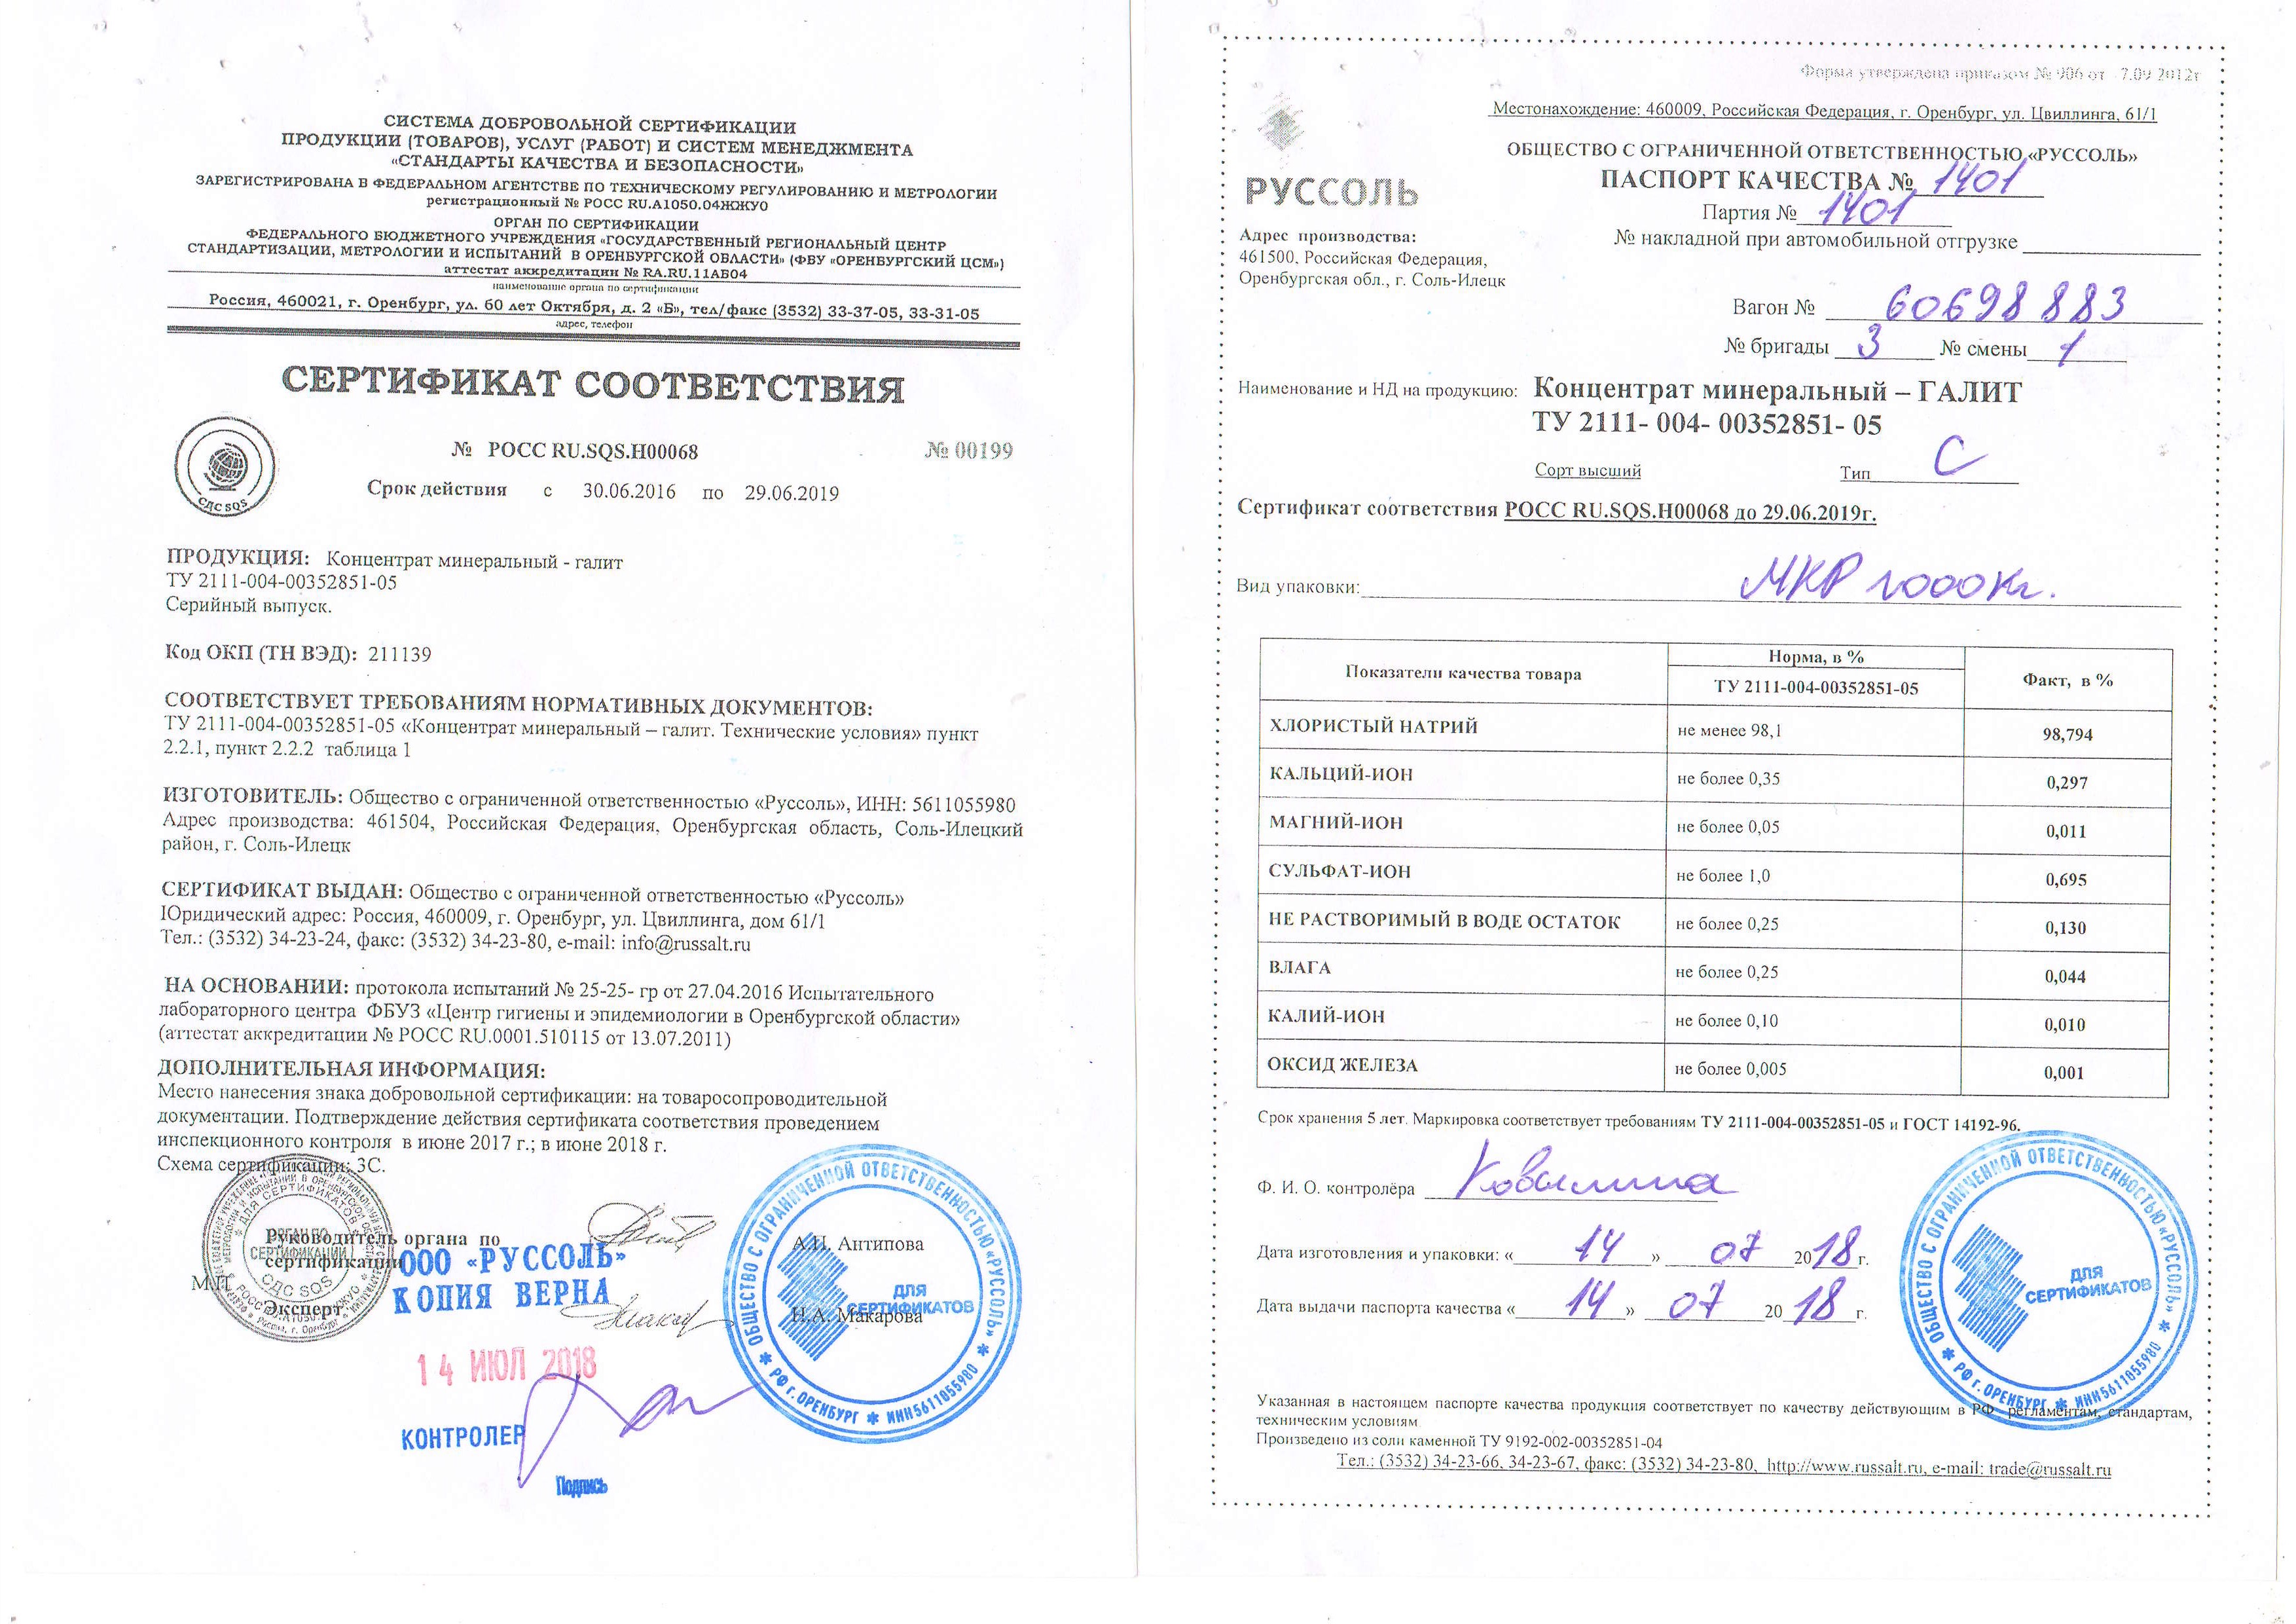 СИСТЕМА ДОБРОВОЛЬНОЙ СЕРТИФИКАЦИИ
ПРОДУКЦИИ (ТОВАРОВ), УСЛУГ (РАБОТ) И СИСТЕМ МЕНЕДЖМЕНТА
«СТАНДАРТЫ КАЧЕСТВА И БЕЗОПАСНОСТИ»
ЗАРЕГИСТРИРОВАНА В ФЕДЕРАЛЬНОМ АГЕНТСТВЕ ПО ТЕХНИЧЕСКОМУ РЕГУЛИРОВАНИЮ И МЕТРОЛОГИИ
регистрационный № РОСС RU.А1050.04ЖЖУ0
ОРГАН ПО СЕРТИФИКАЦИИ
ФЕДЕРАЛЬНОГО БЮДЖЕТНОГО УЧРЕЖДЕНИЯ «ГОСУДАРСТВЕННЫЙ РЕГИОНАЛЬНЫЙ ЦЕНТР
СТАНДАРТИЗАЦИИ, МЕТРОЛОГИИ И ИСПЫТАНИЙ В ОРЕНБУРГСКОЙ ОБЛАСТИ» (ФБУ «ОРЕНБУРГСКИЙ ЦСМ»)
аттестат аккредитации № RA.RU.11АБ04
наименование органа по сертификации
Россия, 460021, г. Оренбург, ул. 60 лет Октября, д. 2 «Б», тел/факс (3532) 33-37-05, 33-31-05
адрес, телефон
СЕРТИФИКАТ СООТВЕТСТВИЯ
СДС SQS
№ РОСС RU.SQS.H00068 № 00199
Срок действия с 30.06.2016 по 29.06.2019
ПРОДУКЦИЯ: Концентрат минеральный - галит
ТУ 2111-004-00352851-05
Серийный выпуск.
Код ОКП (ТН ВЭД): 211139
СООТВЕТСТВУЕТ ТРЕБОВАНИЯМ НОРМАТИВНЫХ ДОКУМЕНТОВ:
ТУ 2111-004-00352851-05 «Концентрат минеральный – галит. Технические условия» пункт
2.2.1, пункт 2.2.2 таблица 1
ИЗГОТОВИТЕЛЬ: Общество с ограниченной ответственностью «Руссоль», ИНН: 5611055980
Адрес производства: 461504, Российская Федерация, Оренбургская область, Соль-Илецкий
район, г. Соль-Илецк
СЕРТИФИКАТ ВЫДАН: Общество с ограниченной ответственностью «Руссоль»
Юридический адрес: Россия, 460009, г. Оренбург, ул. Цвиллинга, дом 61/1
Тел.: (3532) 34-23-24, факс: (3532) 34-23-80, e-mail: info@russalt.ru
НА ОСНОВАНИИ: протокола испытаний № 25-25- гр от 27.04.2016 Испытательного
лабораторного центра ФБУЗ «Центр гигиены и эпидемиологии в Оренбургской области»
(аттестат аккредитации № РОСС RU.0001.510115 от 13.07.2011)
ДОПОЛНИТЕЛЬНАЯ ИНФОРМАЦИЯ:
Место нанесения знака добровольной сертификации: на товаросопроводительной
документации. Подтверждение действия сертификата соответствия проведением
инспекционного контроля в июне 2017 г.; в июне 2018 г.
Схема сертификации: 3С.
Руководитель органа по
сертификации
А.П. Антипова
М.П.
Эксперт
Н.А. Макарова
ОРГАН ПО СЕРТИФИКАЦИИ СДС SQS
ДЛЯ СЕРТИФИКАТОВ
ООО «РУССОЛЬ»
КОПИЯ ВЕРНА
14 ИЮЛ 2018
КОНТРОЛЕР
Подпись
ОБЩЕСТВО С ОГРАНИЧЕННОЙ ОТВЕТСТВЕННОСТЬЮ «РУССОЛЬ» * РФ г. ОРЕНБУРГ * ИНН5611055980 *
ДЛЯ
СЕРТИФИКАТОВ
Форма утверждена приказом № 906 от 7.09 2012г
Местонахождение: 460009, Российская Федерация, г. Оренбург, ул. Цвиллинга, 61/1
ОБЩЕСТВО С ОГРАНИЧЕННОЙ ОТВЕТСТВЕННОСТЬЮ «РУССОЛЬ»
РУССОЛЬ
ПАСПОРТ КАЧЕСТВА № 1401
Партия № 1401
№ накладной при автомобильной отгрузке
Адрес производства:
461500, Российская Федерация,
Оренбургская обл., г. Соль-Илецк
Вагон № 60698883
№ бригады 3 № смены 1
Наименование и НД на продукцию: Концентрат минеральный – ГАЛИТ
ТУ 2111- 004- 00352851- 05
Сорт высший Тип С
Сертификат соответствия РОСС RU.SQS.H00068 до 29.06.2019г.
Вид упаковки: МКР 1000кг.
Показатели качества товара Норма, в % Факт, в %
ТУ 2111-004-00352851-05
ХЛОРИСТЫЙ НАТРИЙ не менее 98,1 98,794
КАЛЬЦИЙ-ИОН не более 0,35 0,297
МАГНИЙ-ИОН не более 0,05 0,011
СУЛЬФАТ-ИОН не более 1,0 0,695
НЕ РАСТВОРИМЫЙ В ВОДЕ ОСТАТОК не более 0,25 0,130
ВЛАГА не более 0,25 0,044
КАЛИЙ-ИОН не более 0,10 0,010
ОКСИД ЖЕЛЕЗА не более 0,005 0,001
Срок хранения 5 лет. Маркировка соответствует требованиям ТУ 2111-004-00352851-05 и ГОСТ 14192-96.
Ф. И. О. контролёра
Дата изготовления и упаковки: «14» 07 2018г.
Дата выдачи паспорта качества «14» 07 2018 г.
ОБЩЕСТВО С ОГРАНИЧЕННОЙ ОТВЕТСТВЕННОСТЬЮ «РУССОЛЬ» * РФ г. ОРЕНБУРГ * ИНН5611055980 *
ДЛЯ
СЕРТИФИКАТОВ
Указанная в настоящем паспорте качества продукция соответствует по качеству действующим в РФ регламентам, стандартам,
техническим условиям
Произведено из соли каменной ТУ 9192-002-00352851-04
Тел.: (3532) 34-23-66, 34-23-67, факс: (3532) 34-23-80, http://www.russalt.ru, e-mail: trade@russalt.ru